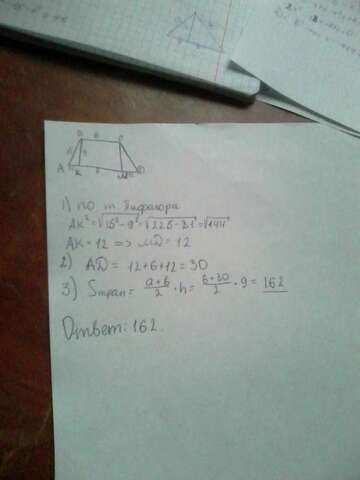 B 6 C
A K 6 M D
1) по т. Пифагора
AK² = √15² - 9² = √225 - 81 = √144
AK = 12 => MD = 12
2) AD = 12 + 6 + 12 = 30
3) Sтрап = a+b/2 · h = 6+30/2 · 9 = 162
Ответ: 162.